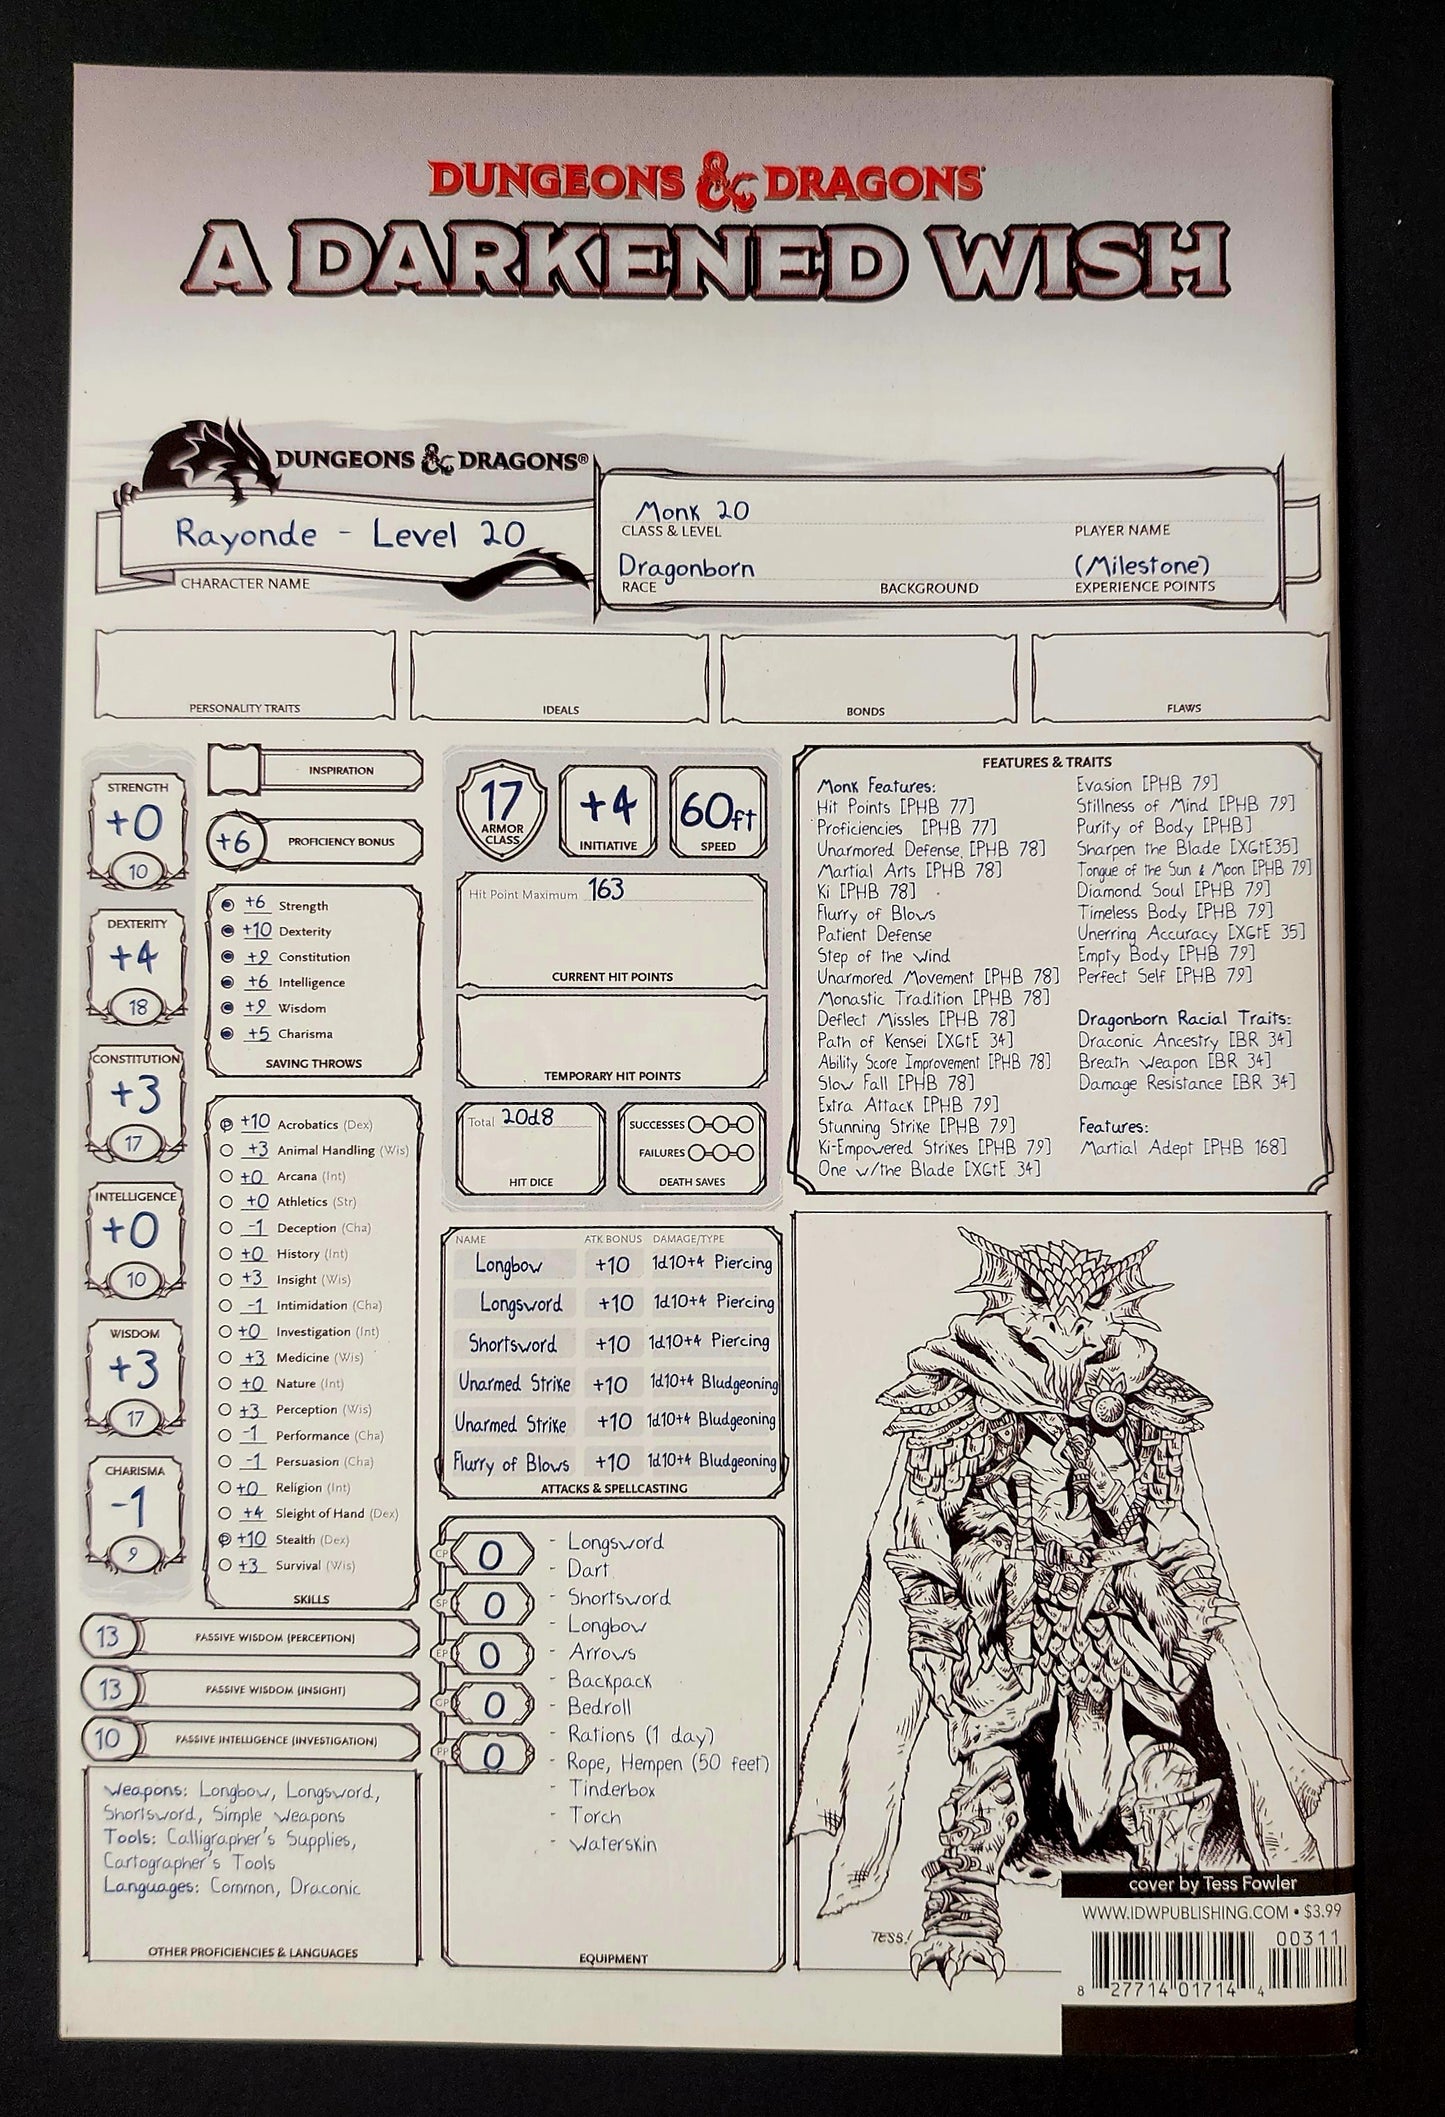 DUNGEONS & DRAGONS
A DARKENED WISH
DUNGEONS & DRAGONS®
Rayonde - Level 20
CHARACTER NAME
Monk 20
CLASS & LEVEL
PLAYER NAME
Dragonborn
(Milestone)
RACE
BACKGROUND
EXPERIENCE POINTS
PERSONALITY TRAITS
IDEALS
BONDS
FLAWS
STRENGTH
+0
10
DEXTERITY
+4
18
CONSTITUTION
+3
17
INTELLIGENCE
+0
10
WISDOM
+3
17
CHARISMA
-1
9
INSPIRATION
+6 PROFICIENCY BONUS
+6 Strength
+10 Dexterity
+9 Constitution
+6 Intelligence
+9 Wisdom
+5 Charisma
SAVING THROWS
P +10 Acrobatics (Dex)
+3 Animal Handling (Wis)
+0 Arcana (Int)
+0 Athletics (Str)
-1 Deception (Cha)
+0 History (Int)
+3 Insight (Wis)
-1 Intimidation (Cha)
+0 Investigation (Int)
+3 Medicine (Wis)
+0 Nature (Int)
+3 Perception (Wis)
-1 Performance (Cha)
-1 Persuasion (Cha)
+0 Religion (Int)
+4 Sleight of Hand (Dex)
P +10 Stealth (Dex)
+3 Survival (Wis)
SKILLS
13 PASSIVE WISDOM (PERCEPTION)
13 PASSIVE WISDOM (INSIGHT)
10 PASSIVE INTELLIGENCE (INVESTIGATION)
Weapons: Longbow, Longsword,
Shortsword, Simple Weapons
Tools: Calligrapher's Supplies,
Cartographer's Tools
Languages: Common, Draconic
OTHER PROFICIENCIES & LANGUAGES
17
ARMOR
CLASS
+4
INITIATIVE
60ft
SPEED
Hit Point Maximum 163
CURRENT HIT POINTS
TEMPORARY HIT POINTS
Total 20d8
HIT DICE
SUCCESSES
FAILURES
DEATH SAVES
NAME ATK BONUS DAMAGE/TYPE
Longbow +10 1d10+4 Piercing
Longsword +10 1d10+4 Piercing
Shortsword +10 1d10+4 Piercing
Unarmed Strike +10 1d10+4 Bludgeoning
Unarmed Strike +10 1d10+4 Bludgeoning
Flurry of Blows +10 1d10+4 Bludgeoning
ATTACKS & SPELLCASTING
CP 0
SP 0
EP 0
GP 0
PP 0
- Longsword
- Dart
- Shortsword
- Longbow
- Arrows
- Backpack
- Bedroll
- Rations (1 day)
- Rope, Hempen (50 feet)
- Tinderbox
- Torch
- Waterskin
EQUIPMENT
FEATURES & TRAITS
Monk Features:
Hit Points [PHB 77]
Proficiencies [PHB 77]
Unarmored Defense, [PHB 78]
Martial Arts [PHB 78]
Ki [PHB 78]
Flurry of Blows
Patient Defense
Step of the Wind
Unarmored Movement [PHB 78]
Monastic Tradition [PHB 78]
Deflect Missles [PHB 78]
Path of Kensei [XGtE 34]
Ability Score Improvement [PHB 78]
Slow Fall [PHB 78]
Extra Attack [PHB 79]
Stunning Strike [PHB 79]
Ki-Empowered Strikes [PHB 79]
One w/the Blade [XGtE 34]
Evasion [PHB 79]
Stillness of Mind [PHB 79]
Purity of Body [PHB]
Sharpen the Blade [XGtE35]
Tongue of the Sun & Moon [PHB 79]
Diamond Soul [PHB 79]
Timeless Body [PHB 79]
Unerring Accuracy [XGtE 35]
Empty Body [PHB 79]
Perfect Self [PHB 79]
Dragonborn Racial Traits:
Draconic Ancestry [BR 34]
Breath Weapon [BR 34]
Damage Resistance [BR 34]
Features:
Martial Adept [PHB 168]
TESS!
cover by Tess Fowler
WWW.IDWPUBLISHING.COM • $3.99
00311
8 27714 01714 4